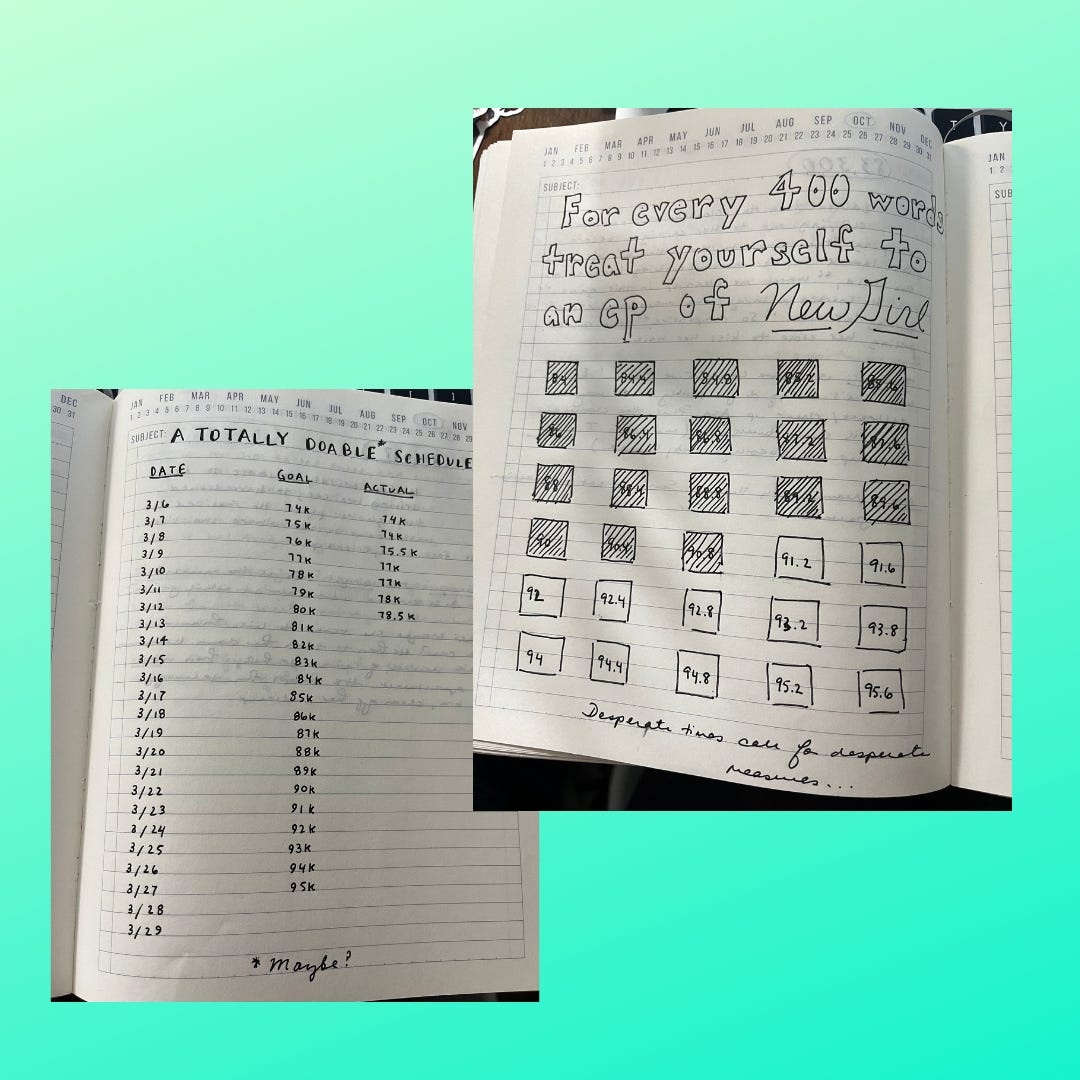 DEC
30 31
JAN FEB MAR APR MAY JUN JUL AUG SEP OCT NOV
1 2 3 4 5 6 7 8 9 10 11 12 13 14 15 16 17 18 19 20 21 22 23 24 25 26 27 28 29
SUBJECT: A TOTALLY DOABLE* SCHEDULE
DATE GOAL ACTUAL
3/6 74K 74K
3/7 75K 74K
3/8 76K 75.5K
3/9 77K 77K
3/10 78K 77K
3/11 79K 78K
3/12 80K 78.5K
3/13 81K
3/14 82K
3/15 83K
3/16 84K
3/17 85K
3/18 86K
3/19 87K
3/20 88K
3/21 89K
3/22 90K
3/23 91K
3/24 92K
3/25 93K
3/26 94K
3/27 95K
3/28
3/29
* Maybe?
JAN FEB MAR APR MAY JUN JUL AUG SEP OCT NOV DEC
1 2 3 4 5 6 7 8 9 10 11 12 13 14 15 16 17 18 19 20 21 22 23 24 25 26 27 28 29 30 31
SUBJECT:
For every 400 words
treat yourself to
an ep of New Girl
84 84.4 84.8 85.2 85.6
86 86.4 86.8 87.2 87.6
88 88.4 88.8 89.2 89.6
90 90.4 90.8 91.2 91.6
92 92.4 92.8 93.2 93.8
94 94.4 94.8 95.2 95.6
Desperate times call for desperate
measures...
JAN
1 2
SUB
T Y